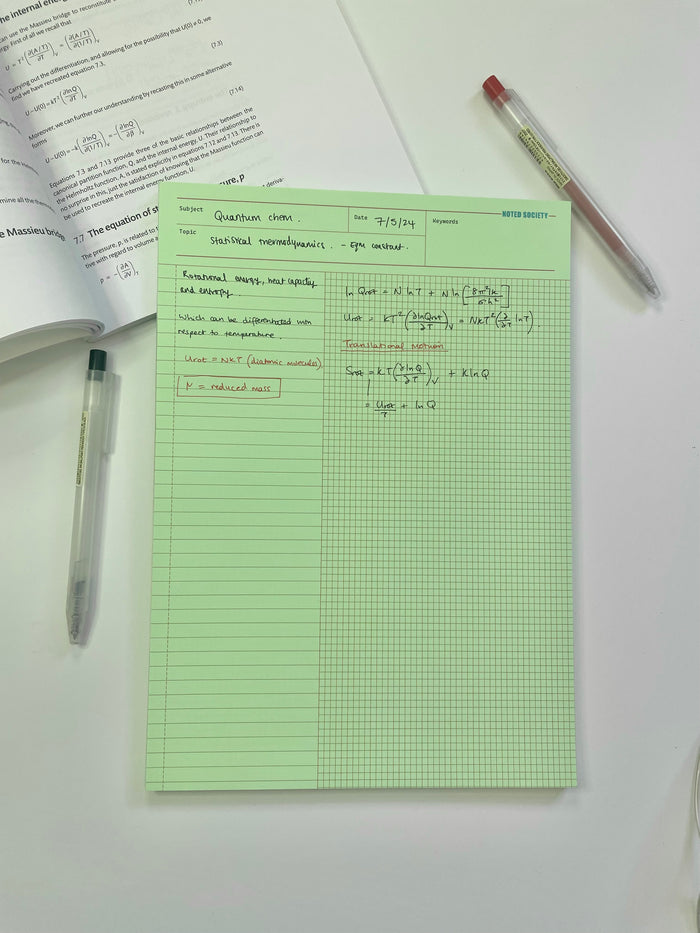 he internal ene
can use the Massieu bridge to reconstitute
rgy. First of all we recall that
U = T² (∂(A/T)/∂T)_V = (∂(A/T)/∂(1/T))_V
Carrying out the differentiation, and allowing for the possibility that U(0) ≠ 0, we
find we have recreated equation 7.3.
(7.3)
U – U(0) = kT² (∂lnQ/∂T)_V
Moreover, we can further our understanding by recasting this in some alternative
forms
(7.14)
U – U(0) = –k (∂lnQ/∂(1/T))_V = –(∂lnQ/∂β)_V
Equations 7.3 and 7.13 provide three of the basic relationships between the
canonical partition function, Q, and the internal energy, U. Their relationship to
the Helmholtz function, A, is stated explicitly in equations 7.12 and 7.13. There is
no surprise in this, just the satisfaction of knowing that the Massieu function can
be used to recreate the internal energy function, U.
7.7 The equation of st
ure, p
The pressure, p, is related to
deriva-
tive with regard to volume a
p = –(∂A/∂V)_T
for the
mine all the therm
e Massieu bridge
Subject Quantum chem.
Date 7/5/24
Keywords
NOTED SOCIETY
Topic Statistical thermodynamics. – eqm constant.
Rotational energy, heat capacity
and entropy.
which can be differentiated with
respect to temperature.
Urot = NkT (diatomic molecules)
μ = reduced mass
ln Qrot = N ln T + N ln [8π²Ik/σh²]
Urot = kT² (∂lnQrot/∂T)_V = NkT² (∂/∂T ln T).
Translational Motion
Srot = kT (∂lnQ/∂T)_V + k ln Q
= Urot/T + ln Q